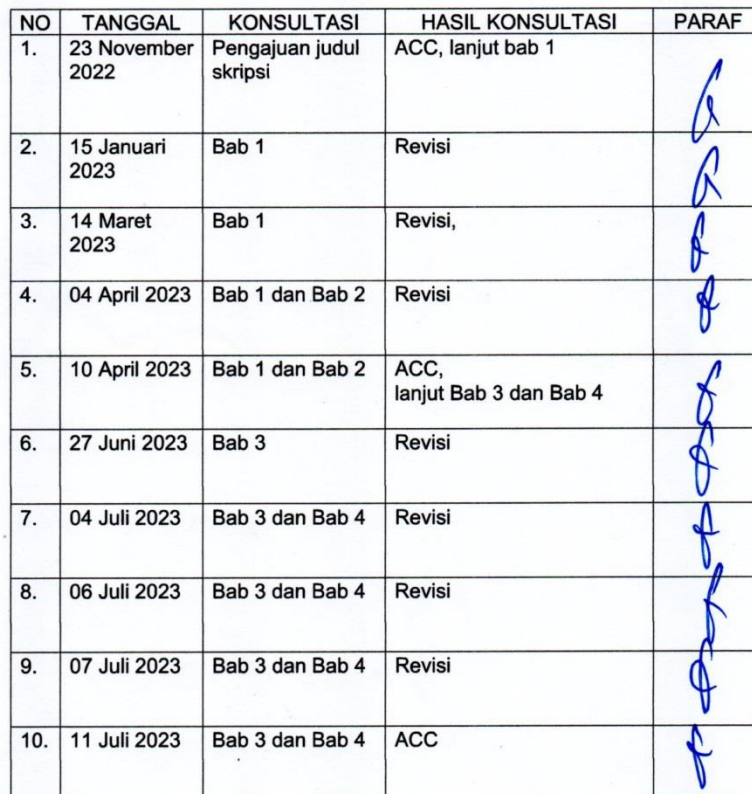 NO TANGGAL KONSULTASI HASIL KONSULTASI PARAF
1. 23 November Pengajuan judul ACC, lanjut bab 1
2022 skripsi
2. 15 Januari Bab 1 Revisi
2023
3. 14 Maret Bab 1 Revisi,
2023
4. 04 April 2023 Bab 1 dan Bab 2 Revisi
5. 10 April 2023 Bab 1 dan Bab 2 ACC,
lanjut Bab 3 dan Bab 4
6. 27 Juni 2023 Bab 3 Revisi
7. 04 Juli 2023 Bab 3 dan Bab 4 Revisi
8. 06 Juli 2023 Bab 3 dan Bab 4 Revisi
9. 07 Juli 2023 Bab 3 dan Bab 4 Revisi
10. 11 Juli 2023 Bab 3 dan Bab 4 ACC